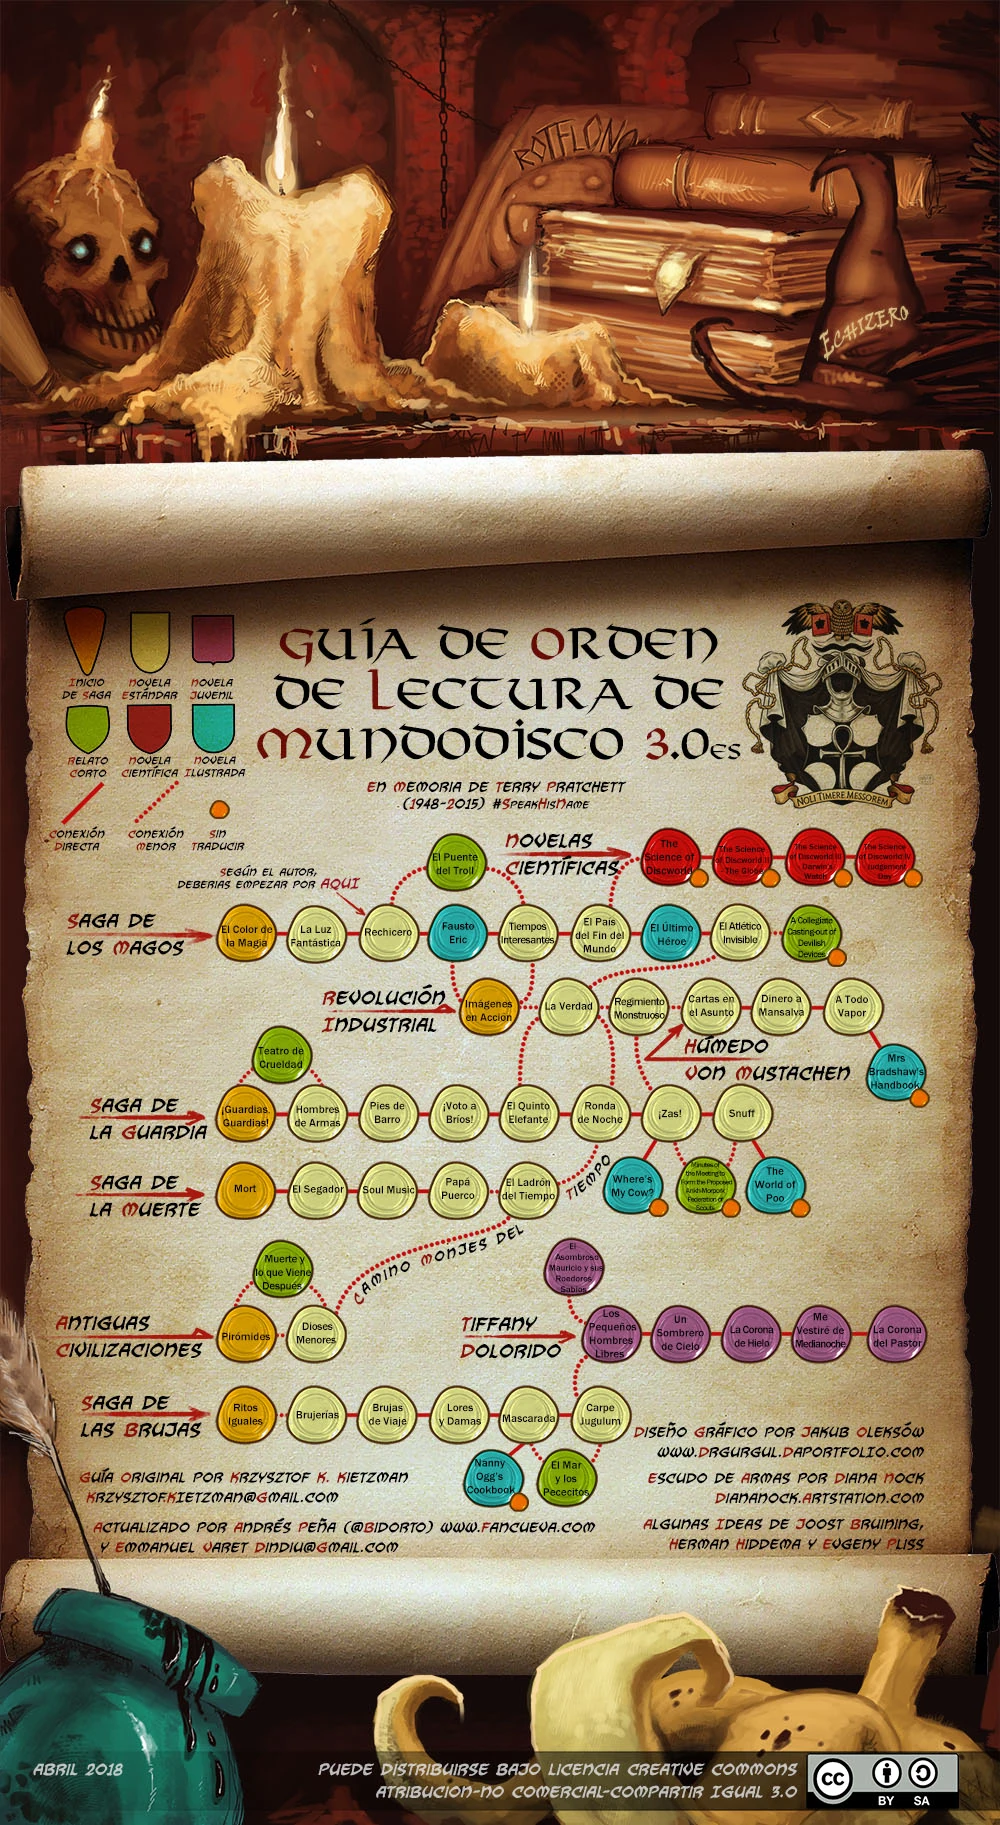 ROTFLONO
ECHIZERO
INICIO
DE SAGA
NOVELA
ESTÁNDAR
NOVELA
JUVENIL
RELATO
CORTO
NOVELA
CIENTÍFICA
NOVELA
ILUSTRADA
CONEXIÓN
DIRECTA
CONEXIÓN
MENOR
SIN
TRADUCIR
GUÍA DE ORDEN
DE LECTURA DE
MUNDODISCO 3.0ES
EN MEMORIA DE TERRY PRATCHETT
(1948-2015) #SPEAKHISNAME
NOLI TIMERE MESSOREM
NOVELAS
CIENTÍFICAS
The
Science of
Discworld
The Science
of Discworld II
The Globe
The Science
of Discworld III
Darwin's
Watch
The Science
of Discworld IV
Judgement
Day
El Puente
del Troll
SEGÚN EL AUTOR,
DEBERIAS EMPEZAR POR AQUI
SAGA DE
LOS MAGOS
El Color de
la Magia
La Luz
Fantástica
Rechicero
Fausto
Eric
Tiempos
Interesantes
El País
del Fin del
Mundo
El Último
Héroe
El Atlético
Invisible
A Collegiate
Casting-out of
Devilish
Devices
REVOLUCIÓN
INDUSTRIAL
Imágenes
en Acción
La Verdad
Regimiento
Monstruoso
Cartas en
el Asunto
Dinero a
Mansalva
A Todo
Vapor
HÚMEDO
VON MUSTACHEN
Mrs
Bradshaw's
Handbook
Teatro de
Crueldad
SAGA DE
LA GUARDIA
¡Guardias,
Guardias!
Hombres
de Armas
Pies de
Barro
¡Voto a
Bríos!
El Quinto
Elefante
Ronda
de Noche
¡Zas!
Snuff
SAGA DE
LA MUERTE
Mort
El Segador
Soul Music
Papá
Puerco
El Ladrón
del Tiempo
Where's
My Cow?
Minutes of
the Meeting to
Form the Proposed
Ankh-Morpork
Federation of
Scouts
The
World of
Poo
CAMINO MONJES DEL TIEMPO
Muerte y
lo que Viene
Después
El
Asombroso
Mauricio y sus
Roedores
Sabios
ANTIGUAS
CIVILIZACIONES
Pirómides
Dioses
Menores
TIFFANY
DOLORIDO
Los
Pequeños
Hombres
Libres
Un
Sombrero
de Cielo
La Corona
de Hielo
Me
Vestiré de
Medianoche
La Corona
del Pastor
SAGA DE
LAS BRUJAS
Ritos
Iguales
Brujerías
Brujas
de Viaje
Lores
y Damas
Mascarada
Carpe
Jugulum
Nanny
Ogg's
Cookbook
El Mar
y los
Pececitos
DISEÑO GRÁFICO POR JAKUB OLEKSÓW
WWW.DRGURGUL.DAPORTFOLIO.COM
GUÍA ORIGINAL POR KRZYSZTOF K. KIETZMAN
KRZYSZTOF.KIETZMAN@GMAIL.COM
ESCUDO DE ARMAS POR DIANA NOCK
DIANANOCK.ARTSTATION.COM
ACTUALIZADO POR ANDRÉS PEÑA (@BIDORTO) WWW.FANCUEVA.COM
Y EMMANUEL VARET DINDIU@GMAIL.COM
ALGUNAS IDEAS DE JOOST BRUINING,
HERMAN HIDDEMA Y EVGENY PLISS
ABRIL 2018
PUEDE DISTRIBUIRSE BAJO LICENCIA CREATIVE COMMONS
ATRIBUCION-NO COMERCIAL-COMPARTIR IGUAL 3.0
CC
BY SA